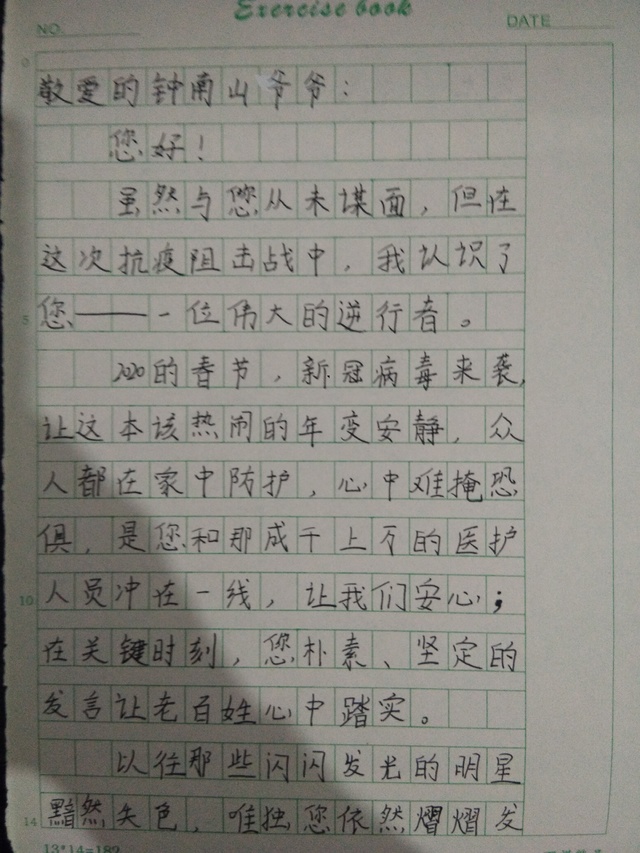 Exercise book
NO.
DATE
敬爱的钟南山爷爷：
您好！
虽然与您从未谋面，但在
这次抗疫阻击战中，我认识了
5 您——一位伟大的逆行者。
2020的春节，新冠病毒来袭，
让这本该热闹的年变安静，众
人都在家中防护，心中难掩恐
俱，是您和那成千上万的医护
10 人员冲在一线，让我们安心；
在关键时刻，您朴素、坚定的
发言让老百姓心中踏实。
以往那些闪闪发光的明星
14 黯然失色，唯独您依然熠熠发
13*14=182